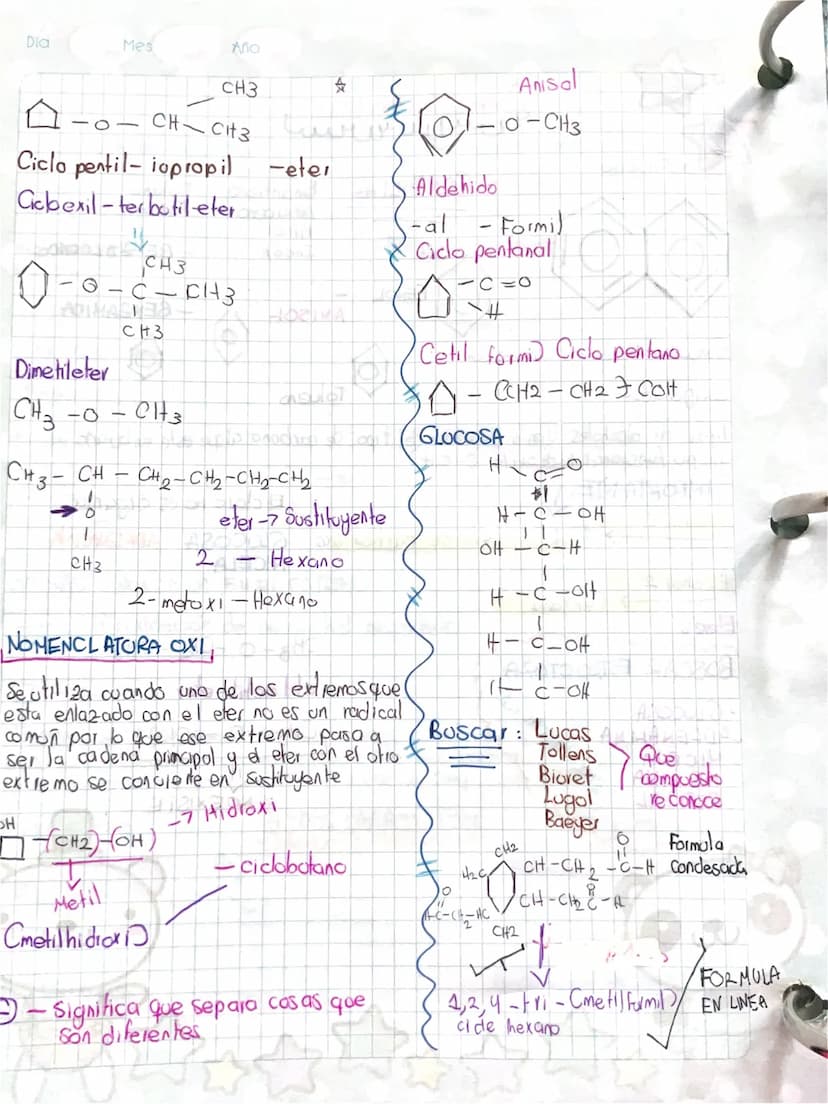 Dia Mes Año
CH3
-O- CH CH3
Ciclo pentil- iopropil -eter
Cicloexil-terbutil-eter
CH3
-O-C-CH3
CH3
Dimetileter
CH3-O-CH3
CH3-CH-CH2-CH2-CH2-CH2
→ O
CH3
eter → Sustituyente
2 - Hexano
2-metoxi-Hexano
NOMENCLATURA OXI
Se utiliza cuando uno de los extremos que
esta enlazado con el eter no es un radical
común por lo que ese extremo pasa a
ser la cadena principal y el eter con el otro
extremo se convierte en sustituyente
→ Hidroxi
OH
-(CH2)-(OH)
Metil
- ciclobutano
(metilhidroxi)
- Significa que separa cosas que
son diferentes
Anisol
-O-CH3
Aldehido
-al - Formil
Ciclo pentanal
-C=O
H
Cetil formil) Ciclo pentano
- C(H2-CH2) COH
GLUCOSA
H C=O
H
H-C-OH
OH-C-H
H-C-OH
H-C-OH
H-C-OH
Buscar: Lucas
Tollens
Bioret
Lugol
Baeyer
Que
compuesto
reconoce
CH2
H2C
CH-CH2-C-H
O
CH-CH2C-H
O
O
H-C-CH2-HC
CH2
Formula
condesada
1,2,4-tri-(metilformil)
ciclehexano
FORMULA
EN LINEA